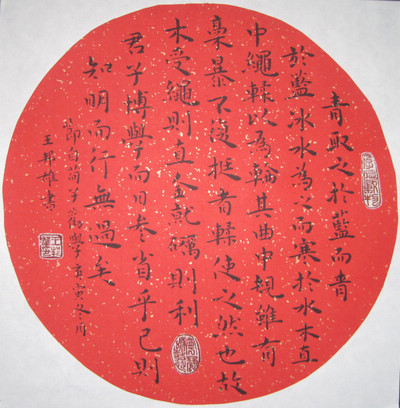 青取之於藍而青
於藍冰水為之而寒於水木直
中繩輮以為輪其曲中規雖有
槀暴不復挺者輮使之然也故
木受繩則直金就礪則利
君子博學而日参省乎己則
知明而行無過矣
節自荀子勸學庚寅冬月
王邦雄書